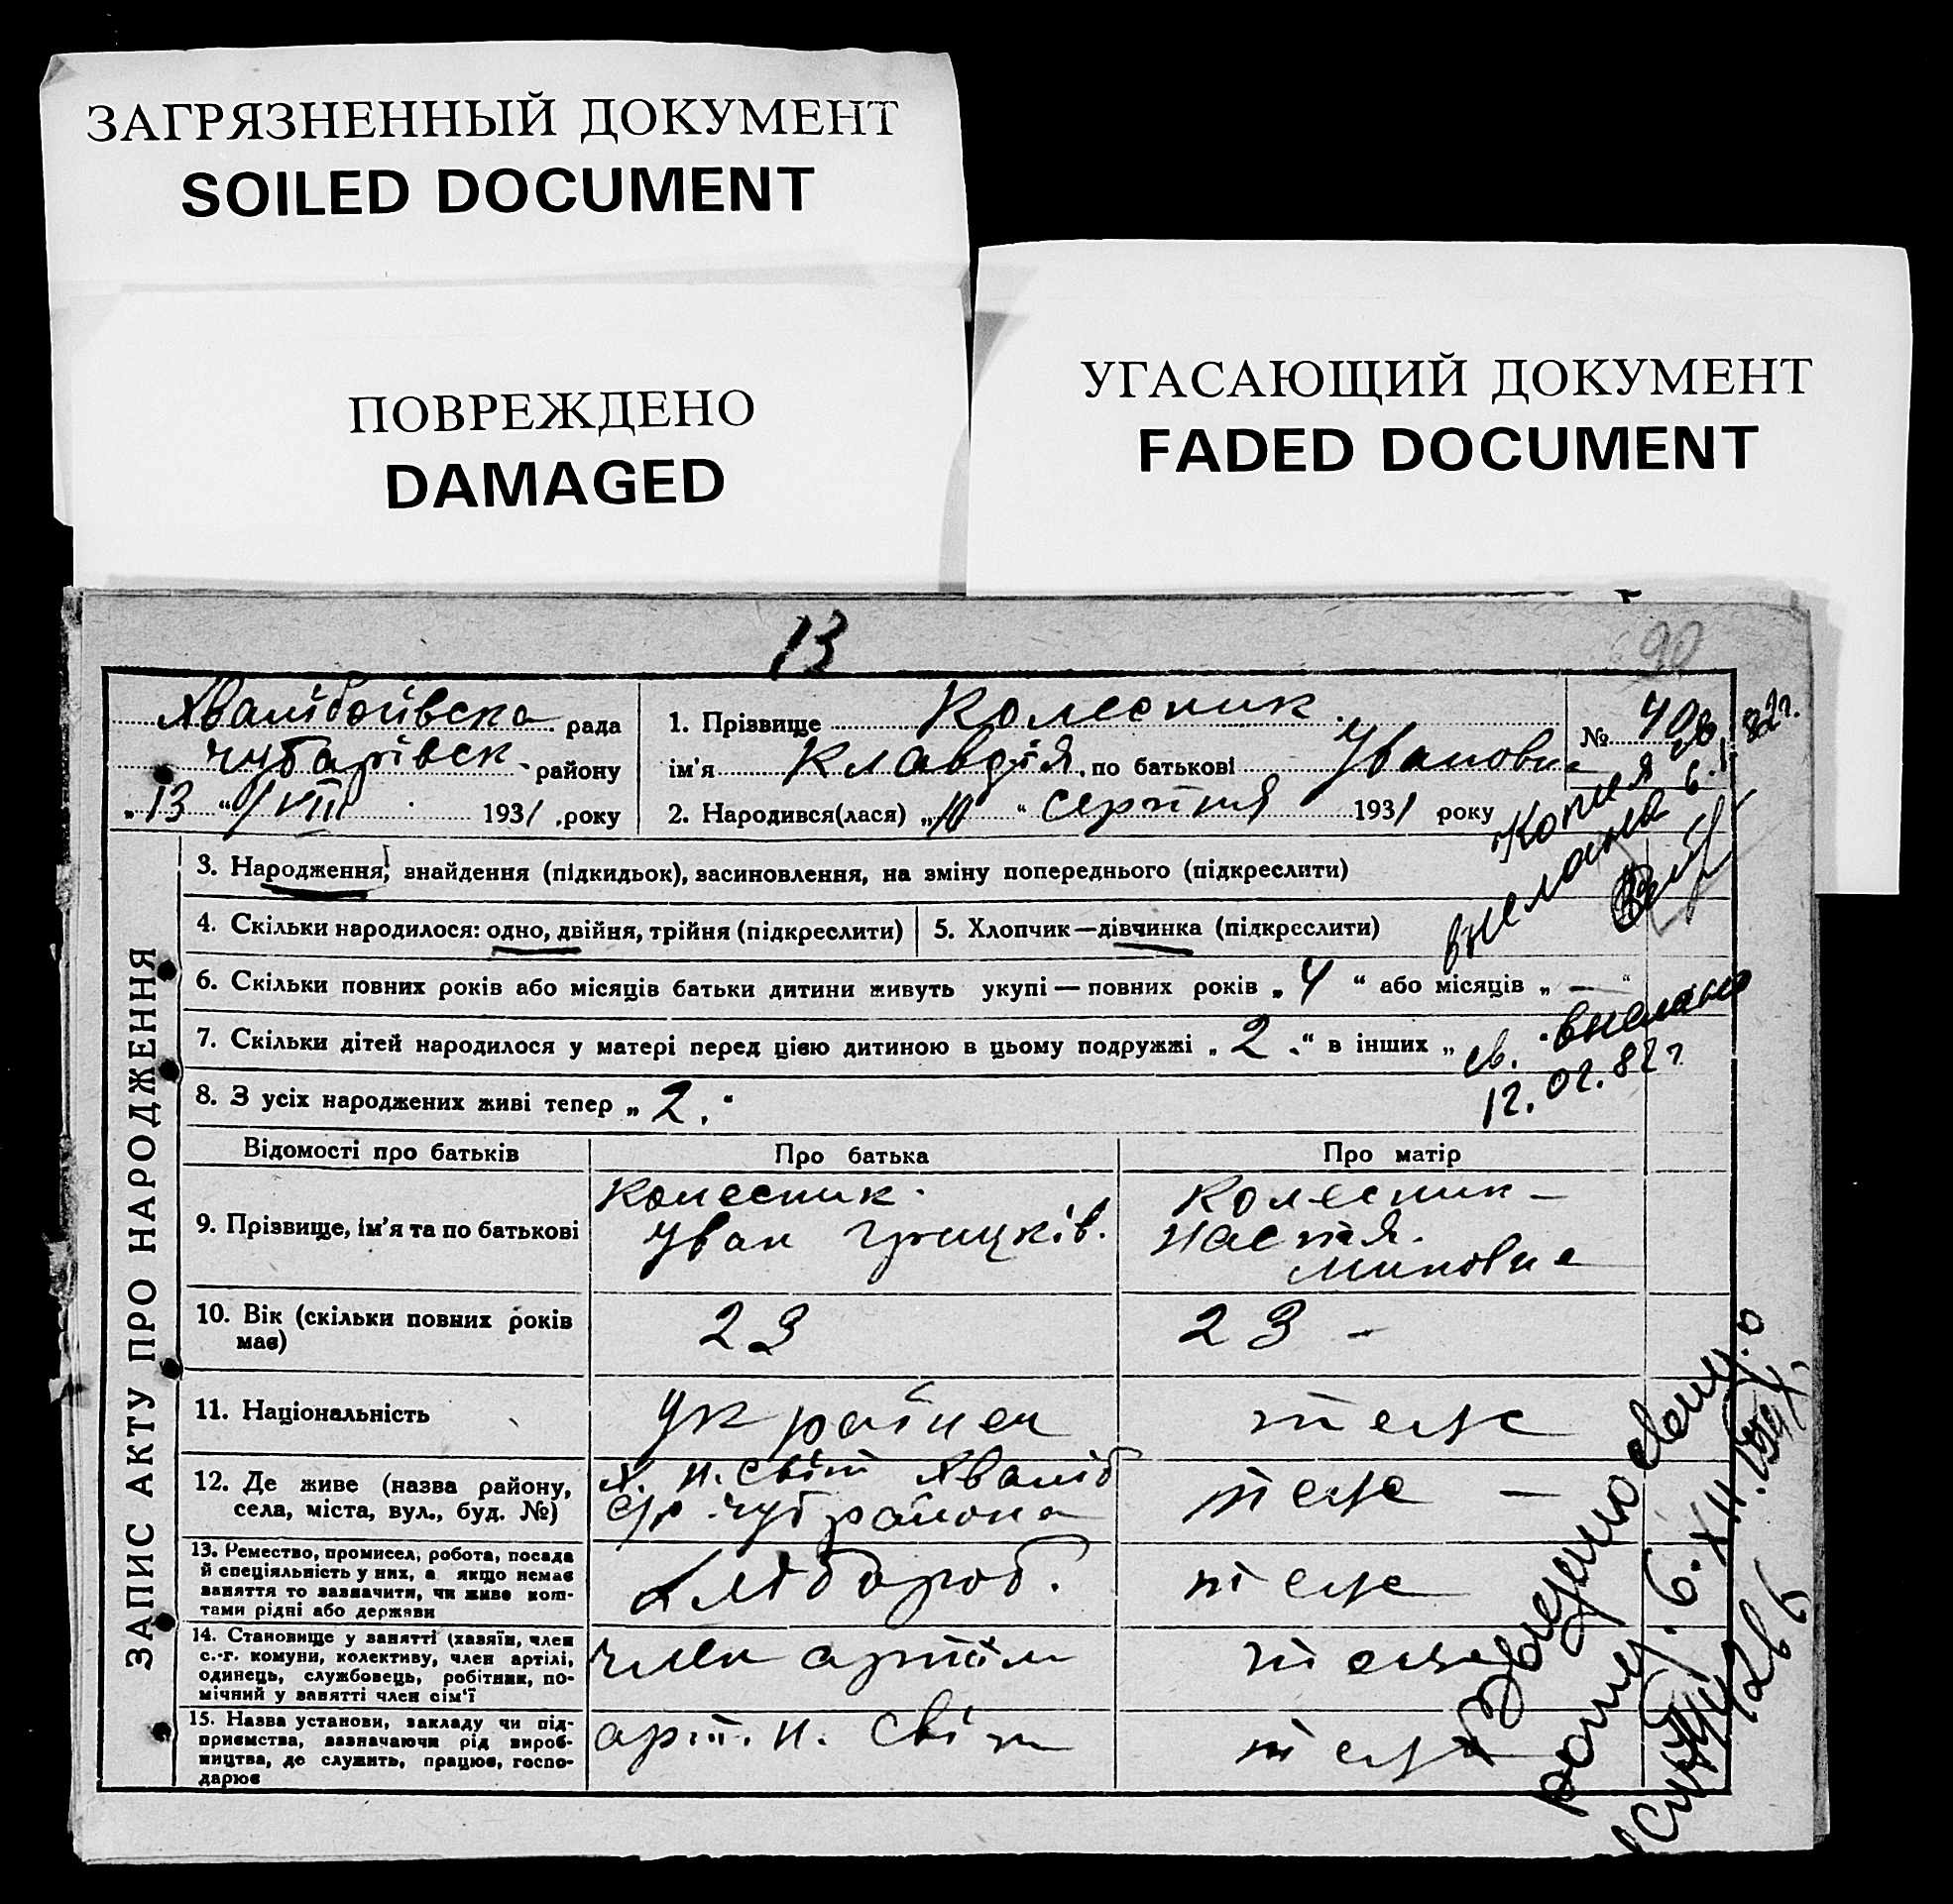 ЗАГРЯЗНЕННЫЙ ДОКУМЕНТ
SOILED DOCUMENT
ПОВРЕЖДЕНО
DAMAGED
УГАСАЮЩИЙ ДОКУМЕНТ
FADED DOCUMENT
13
90
Хвалібоївська рада
Чубарівськ. району
„13“ VIII 1931 року
1. Прізвище Колесник
ім'я Клавдія, по батькові Івановна
2. Народився(лася) „10“ серпня 1931 року
№ 40
Копия
выслана 6.I.82г.
ЗАПИС АКТУ ПРО НАРОДЖЕННЯ
3. Народження, знайдення (підкидьок), засиновлення, на зміну попереднього (підкреслити)
4. Скільки народилося: одно, двійня, трійня (підкреслити)
5. Хлопчик—дівчинка (підкреслити)
6. Скільки повних років або місяців батьки дитини живуть укупі — повних років „4“ або місяців „—“
7. Скільки дітей народилося у матері перед цією дитиною в цьому подружжі „2.“ в інших „
св. выслано
12.02.82г.
8. З усіх народжених живі тепер „2.“
Відомості про батьків
Про батька
Про матір
9. Прізвище, ім'я та по батькові
Колесник
Іван Грицьків.
Колесник —
Настя
10. Вік (скільки повних років
має)
23
23 —
11. Національність
Українец
теж
12. Де живе (назва району,
села, міста, вул., буд. №)
х. н. світ Хваліб
с/р Чуб района
теж —
13. Ремество, промисел, робота, посада
й спеціяльність у них, а якщо немає
заняття то зазначити, чи живе кош-
тами рідні або держави
хлібороб.
теж
14. Становище у занятті (хазяїн, член
с.-г. комуни, колективу, член артілі,
одинець, службовець, робітник, по-
мічний у занятті член сім'ї
член артіли
теж
15. Назва установи, закладу чи під-
приємства, зазначаючи рід вироб-
ництва, де служить, працює, госпо-
дарює
арт. н. світ
теж